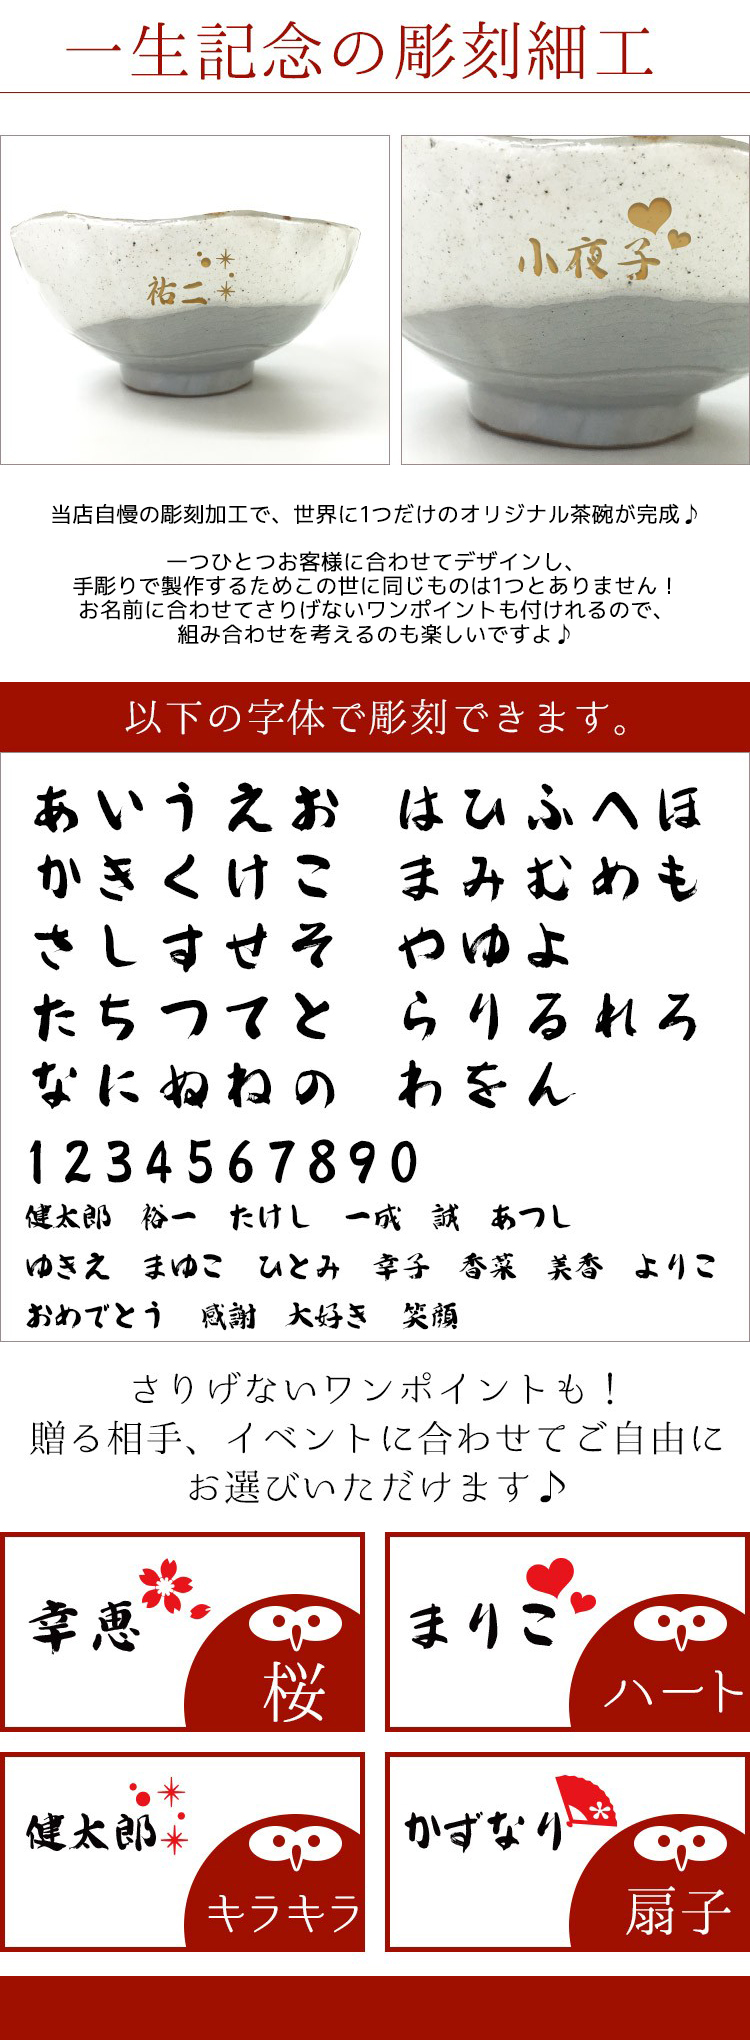 一生記念の彫刻細工
祐二
小夜子
当店自慢の彫刻加工で、世界に1つだけのオリジナル茶碗が完成♪
一つひとつお客様に合わせてデザインし、
手彫りで製作するためこの世に同じものは1つとありません！
お名前に合わせてさりげないワンポイントも付けれるので、
組み合わせを考えるのも楽しいですよ♪
以下の字体で彫刻できます。
あいうえお はひふへほ
かきくけこ まみむめも
さしすせそ やゆよ
たちつてと らりるれろ
なにぬねの わをん
1234567890
健太郎 裕一 たけし 一成 誠 あつし
ゆきえ まゆこ ひとみ 幸子 香菜 美香 よりこ
おめでとう 感謝 大好き 笑顔
さりげないワンポイントも！
贈る相手、イベントに合わせてご自由に
お選びいただけます♪
幸恵
桜
まりこ
ハート
健太郎
キラキラ
かずなり
扇子